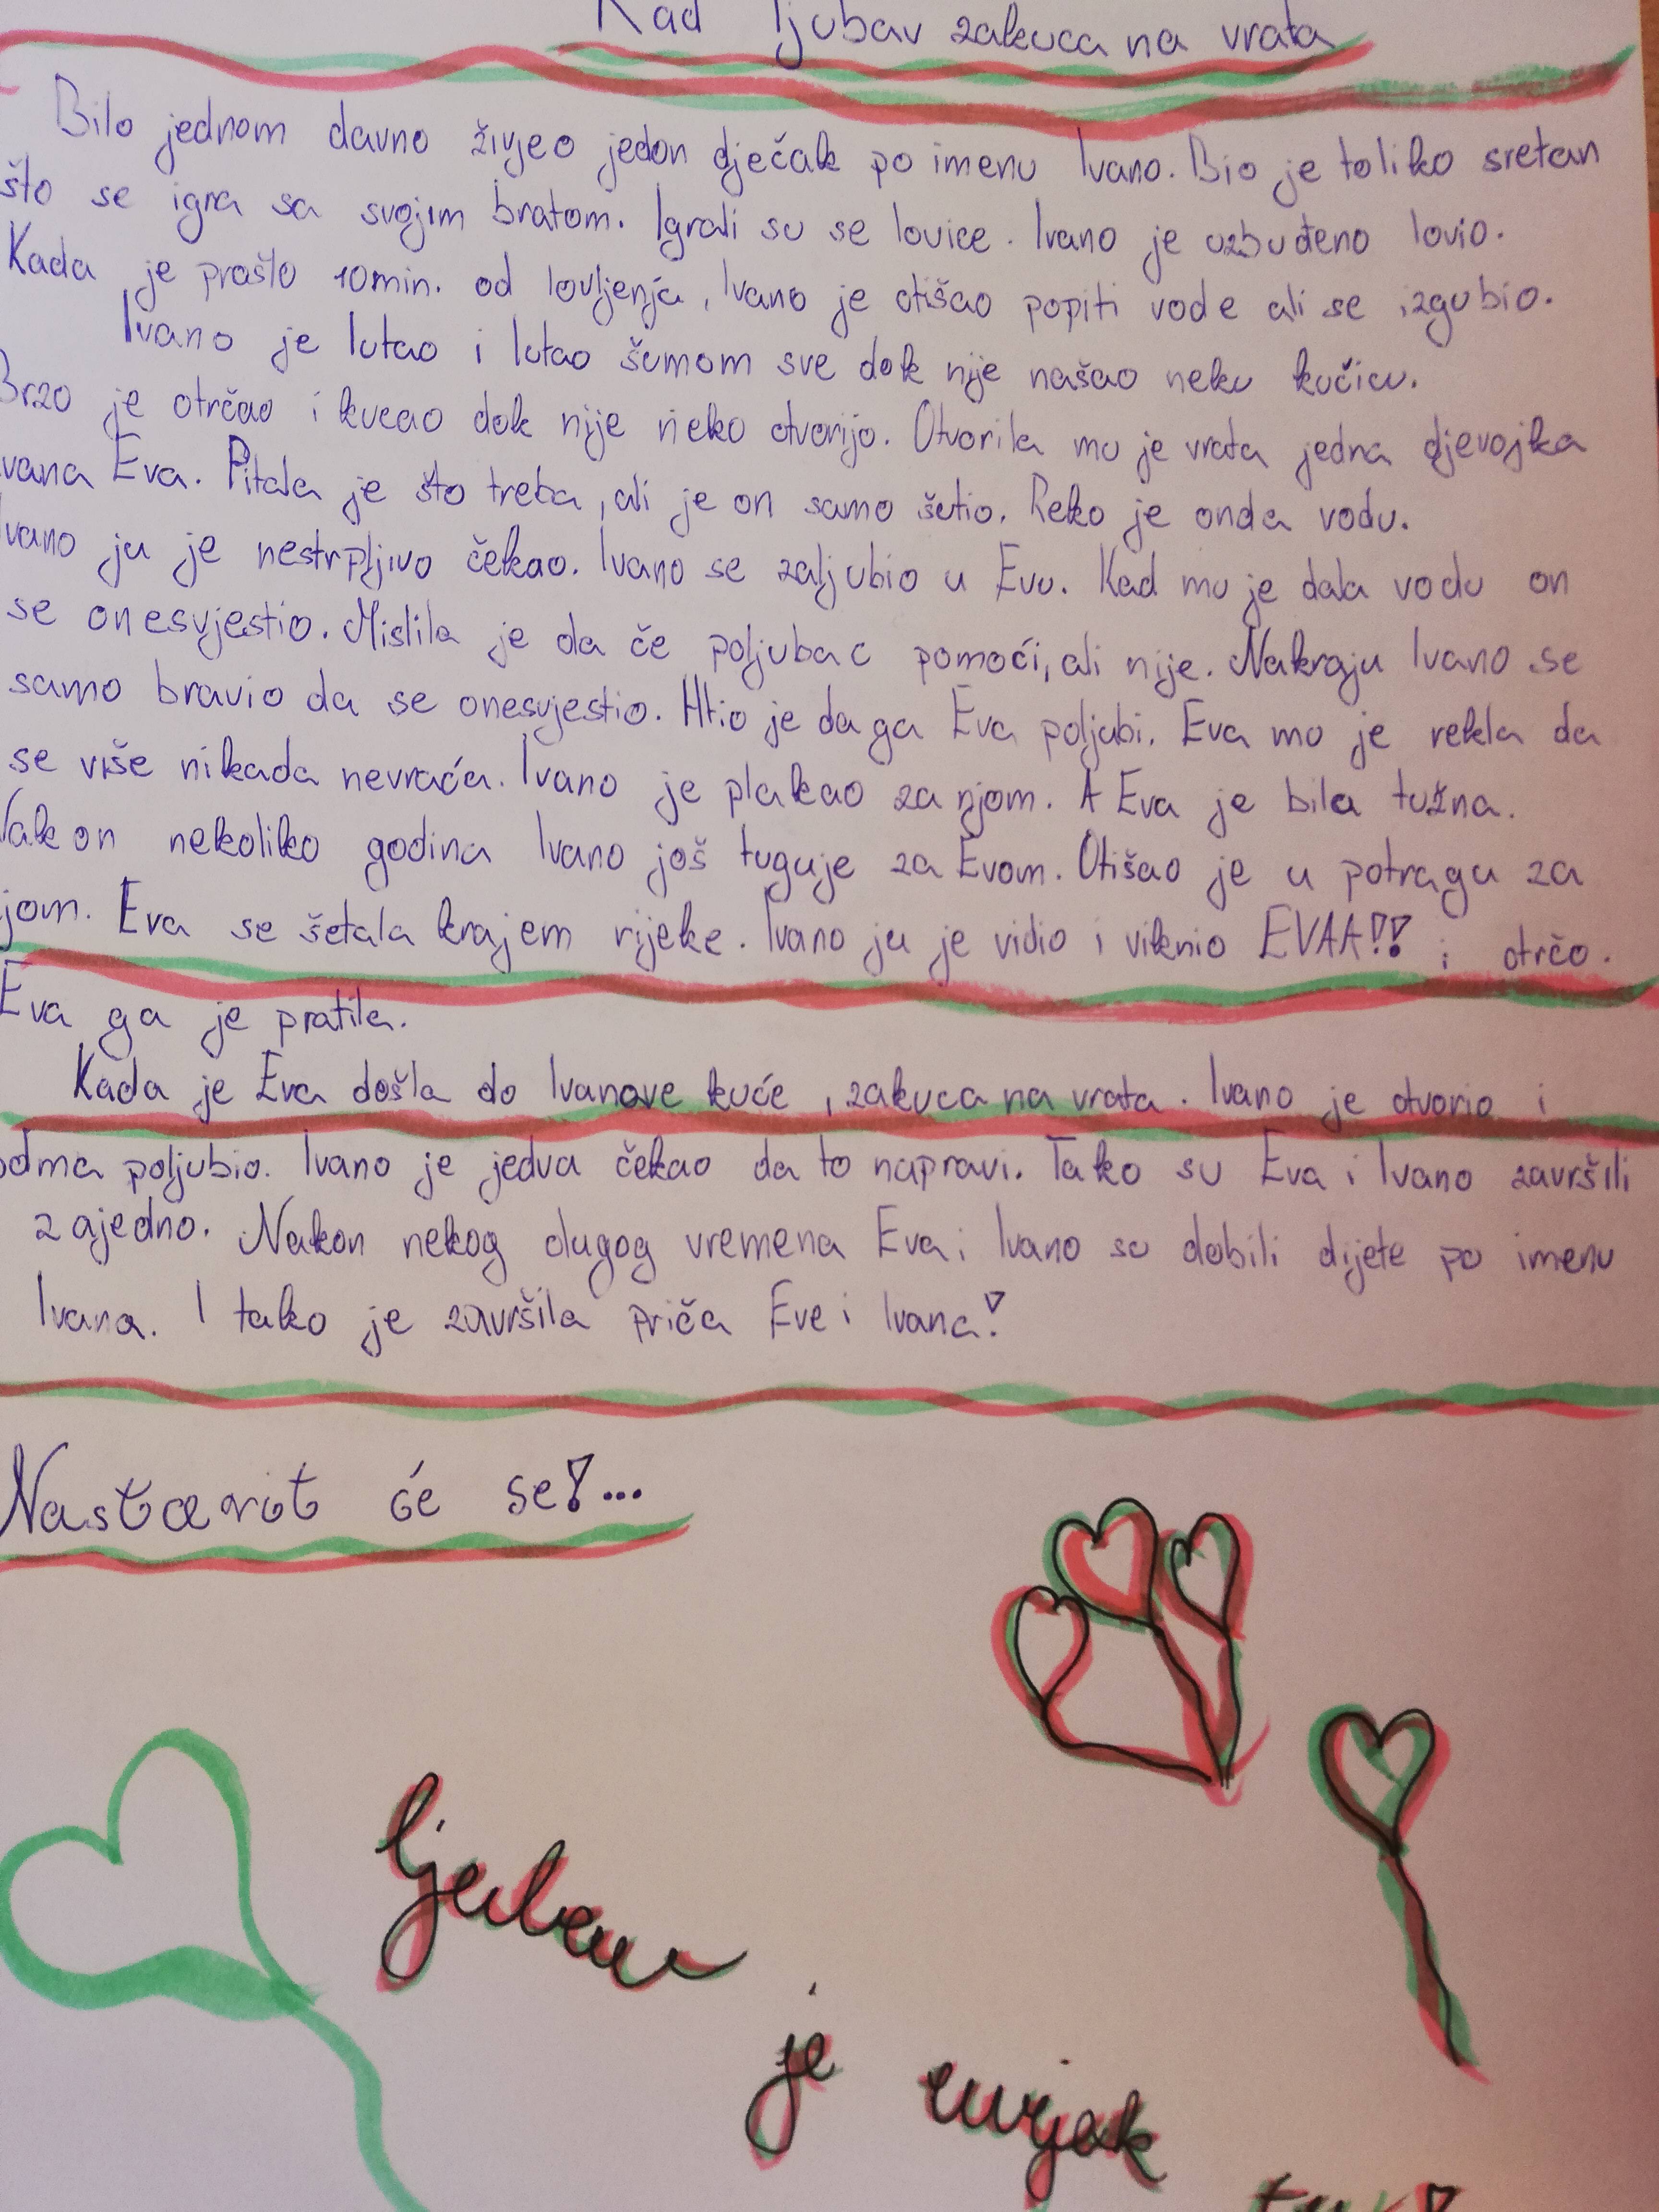 Kad ljubav zakuca na vrata
Bilo jednom davno živjeo jedon dječak po imenu Ivano. Bio je toliko sretan
što se igra sa svojim bratom. Igrali su se lovice. Ivano je uzbuđeno lovio.
Kada je prošlo 10min. od lovljenja, Ivano je otišao popiti vode ali se izgubio.
Ivano je lutao i lutao šumom sve dok nije našao neku kučicu.
Brzo je otrčao i kucao dok nije neko otvorijo. Otvorila mu je vrata jedna djevojka
vana Eva. Pitala je što treba, ali je on samo šutio. Reko je onda vodu.
Ivano ju je nestrpljivo čekao. Ivano se zaljubio u Evu. Kad mu je dala vodu on
se onesvjestio. Mislila je da če poljubac pomoći, ali nije. Nakraju Ivano se
samo bravio da se onesvjestio. Htio je da ga Eva poljubi. Eva mu je rekla da
se više nikada nevraća. Ivano je plakao za njom. A Eva je bila tužna.
Nakon nekoliko godina Ivano još tuguje za Evom. Otišao je u potragu za
jom. Eva se šetala krajem rijeke. Ivano ju je vidio i viknio EVAA!! i otrčo.
Eva ga je pratila.
Kada je Eva došla do Ivanove kuće, zakuca na vrata. Ivano je otvorio i
odma poljubio. Ivano je jedva čekao da to napravi. Tako su Eva i Ivano završili
zajedno. Nakon nekog dugog vremena Eva i Ivano su dobili dijete po imenu
Ivana. I tako je završila priča Eve i Ivana!
Nastavit će se!...
ljubav
je uvijek